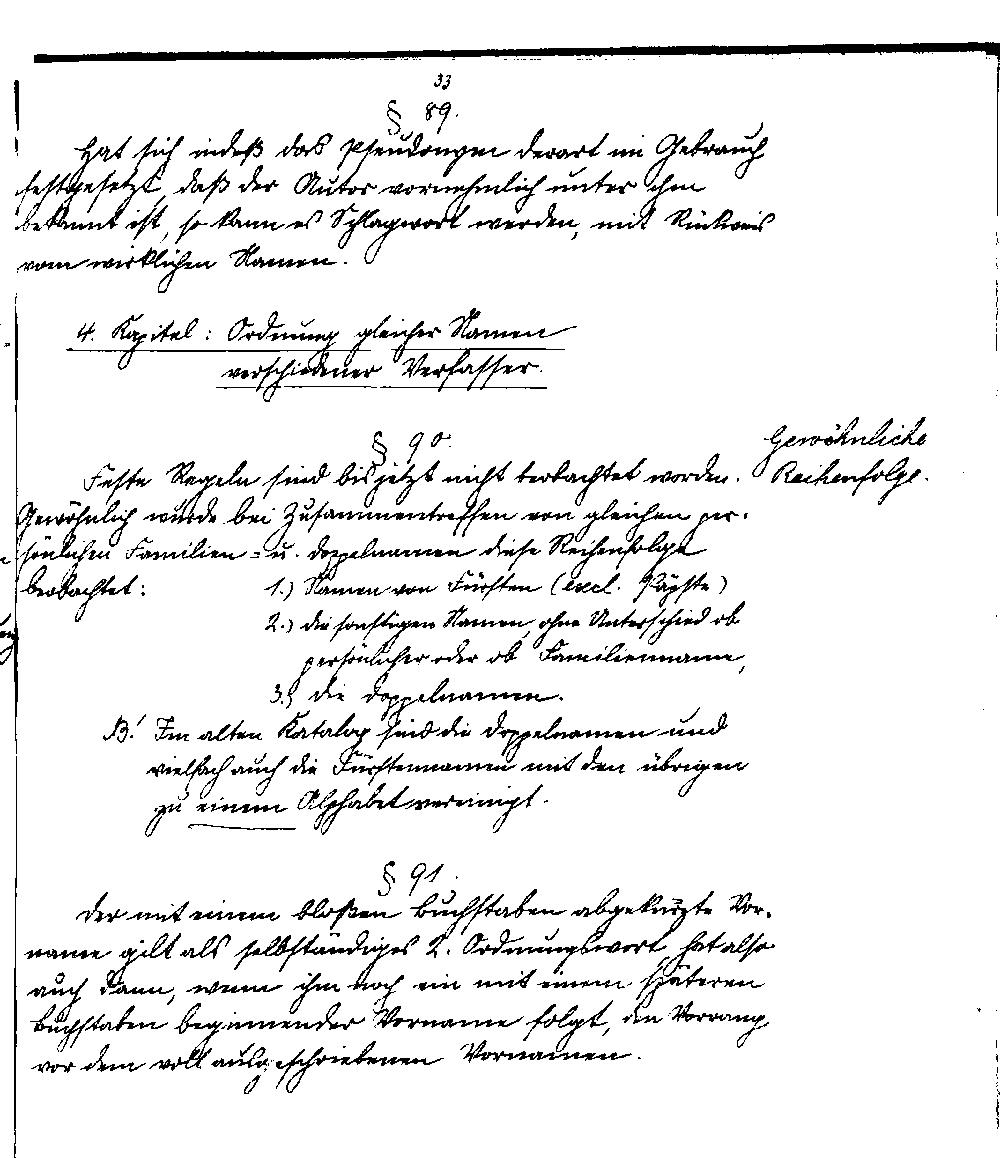 33
§ 89.
Hat sich indeß das Pseudonym derart im Gebrauch
festgesetzt, daß der Autor vornehmlich unter ihm
bekannt ist, so kann es Schlagwort werden, mit Rückweis
vom wirklichen Namen.
4. Kapitel: Ordnung gleicher Namen
verschiedener Verfasser.
§ 90.
Gewöhnliche
Reihenfolge.
Feste Regeln sind bis jetzt nicht beobachtet worden.
Gewöhnlich wurde bei Zusammentreffen von gleichen per-
sönlichen Familien- u. Doppelnamen diese Reihenfolge
beobachtet:
1.) Namen von Fürsten (excl. Päpste)
2.) die sonstigen Namen, ohne Unterschied ob
persönlicher oder ob Familienname,
3.) die Doppelnamen.
NB! Im alten Katalog sind die Doppelnamen und
vielfach auch die Fürstennamen mit den übrigen
zu einem Alphabet vereinigt.
§ 91.
Der mit einem bloßen Buchstaben abgekürzte Vor-
name gilt als selbständiges 2. Ordnungswort, hat also
auch dann, wenn ihm noch ein mit einem späteren
Buchstaben beginnender Vorname folgt, den Vorrang
vor dem voll ausgeschriebenen Vornamen.